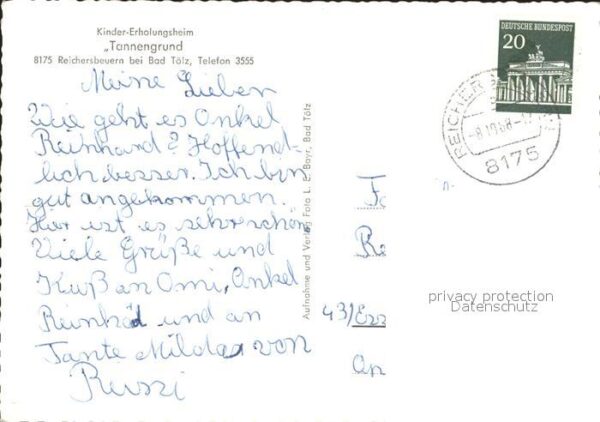 Kinder-Erholungsheim
„Tannengrund
8175 Reichersbeuern bei Bad Tölz, Telefon 3555
Meine Lieben
Wie geht es Onkel
Reinhard? Hoffent-
lich besser. Ich bin
gut angekommen.
Hier ist es sehr schön
Viele Grüße und
Kuß an Omi, Onkel
Reinhad und an
Tante Milda von
Aufnahme und Verlag Foto L. B. Bayr, Bad Tölz
DEUTSCHE BUNDESPOST
20
8175
43/
An
privacy protection
Datenschutz